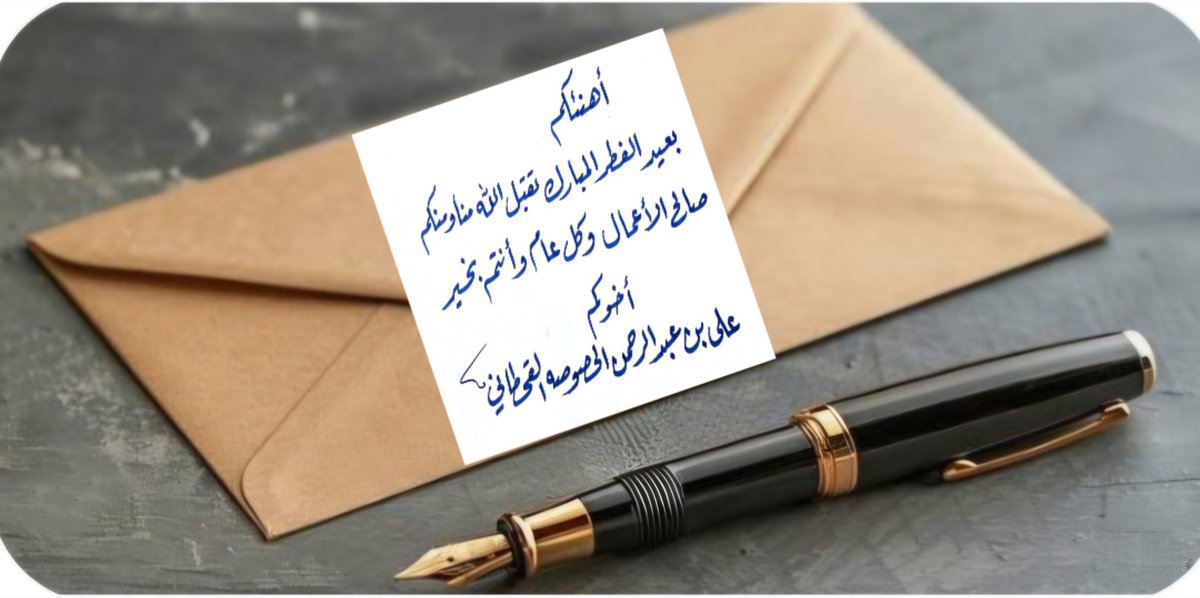 أهنئكم
بعيد الفطر المبارك تقبل الله منا ومنكم
صالح الأعمال وكل عام وأنتم بخير
أخوكم
علي بن عبدالرحمن القحطاني